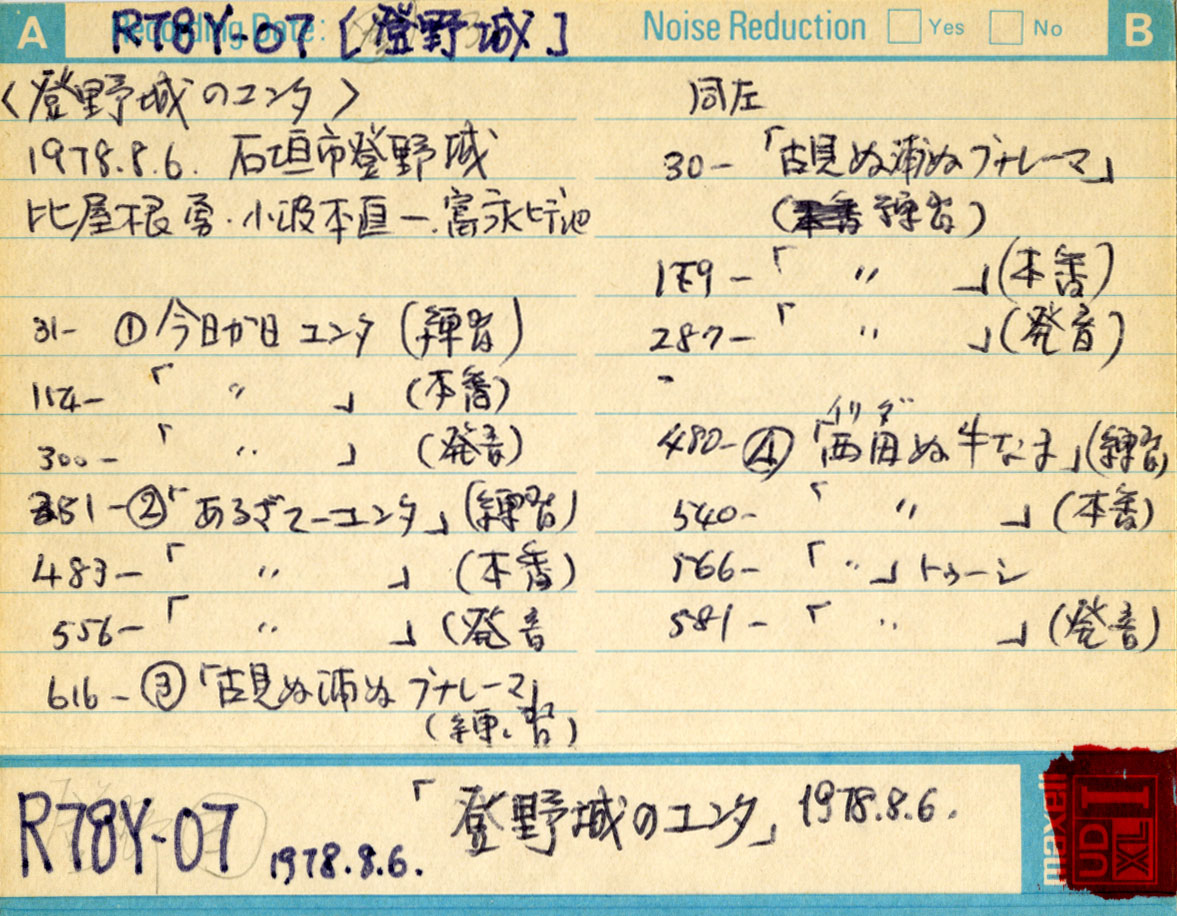 A
Recording Date:
R78Y-07 [登野城]
Noise Reduction
Yes
No
B
〈登野城のユンタ〉
1978.8.6. 石垣市登野城
比屋根勇・小波本直一・富永ヒデ
31- ①今日が日 ユンタ (練習)
114- 「 〃 」 (本番)
300- 「 〃 」 (発音)
351-②「あるざてーユンタ」(練習)
483- 「 〃 」 (本番)
556- 「 〃 」 (発音
616-③「古見ぬ浦ぬ ブナレーマ」
(練習)
同左
30- 「古見ぬ浦ぬブナレーマ」
(練習)
「 〃 」(本番)
287- 「 〃 」(発音)
イリ ダ
480-④「西田ぬ牛なま」(練習)
540- 「 〃 」(本番)
566- 「〃」トゥーシ
581- 「 〃 」(発音)
R78Y-07 1978.8.6.
「登野城のユンタ」1978.8.6.
maxell
UD
XL I